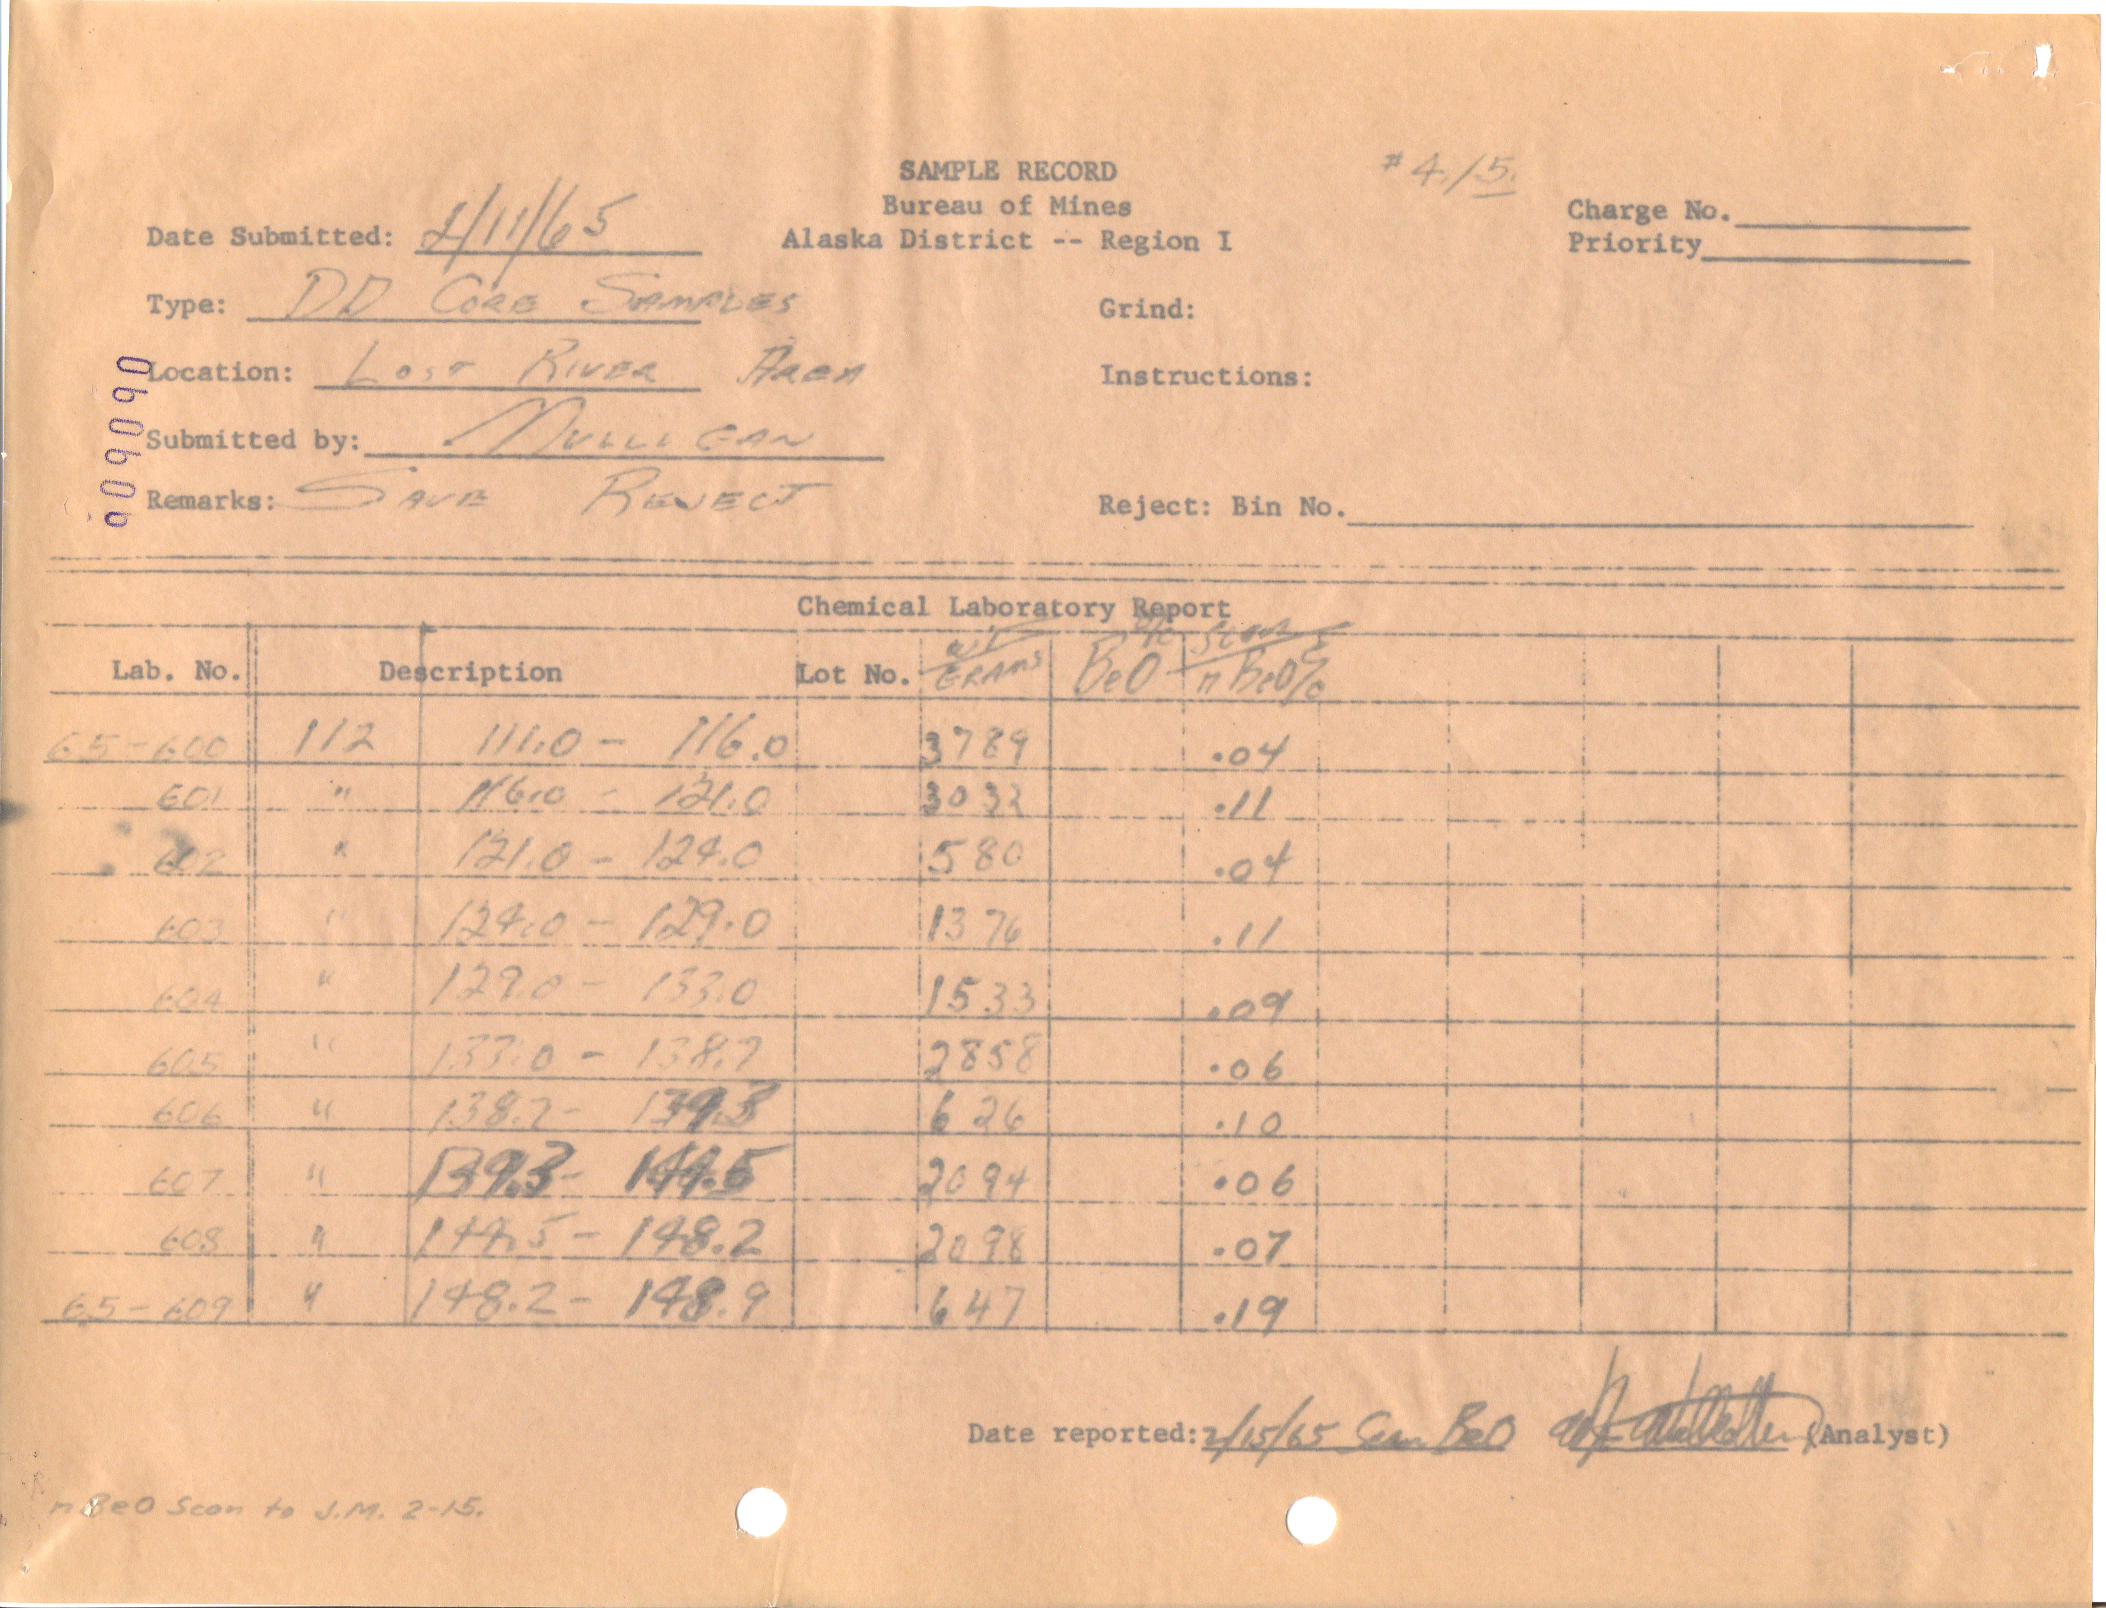 SAMPLE RECORD
# 4/5.
Bureau of Mines
Charge No.
Date Submitted: 2/11/65
Alaska District -- Region I
Priority
Type: DD CORE SAMPLES
Grind:
Location: LOST RIVER AREA
Instructions:
Submitted by: MULLIGAN
Remarks: SAVE REJECT
Reject: Bin No.
060909
Chemical Laboratory Report
Lab. No. Description Lot No. WT GRAMS BeO % Scan n BeO %
65-600 112 111.0 - 116.0 3789 .04
601 " 116.0 - 121.0 3032 .11
602 " 121.0 - 124.0 580 .04
603 " 124.0 - 129.0 1376 .11
604 " 129.0 - 133.0 1533 .09
605 " 133.0 - 138.7 2858 .06
606 " 138.7 - 139.3 626 .10
607 " 139.3 - 144.5 2094 .06
608 " 144.5 - 148.2 2098 .07
65-609 " 148.2 - 148.9 647 .19
Date reported: 2/15/65 Scan BeO (Analyst)
n BeO Scan to J.M. 2-15.